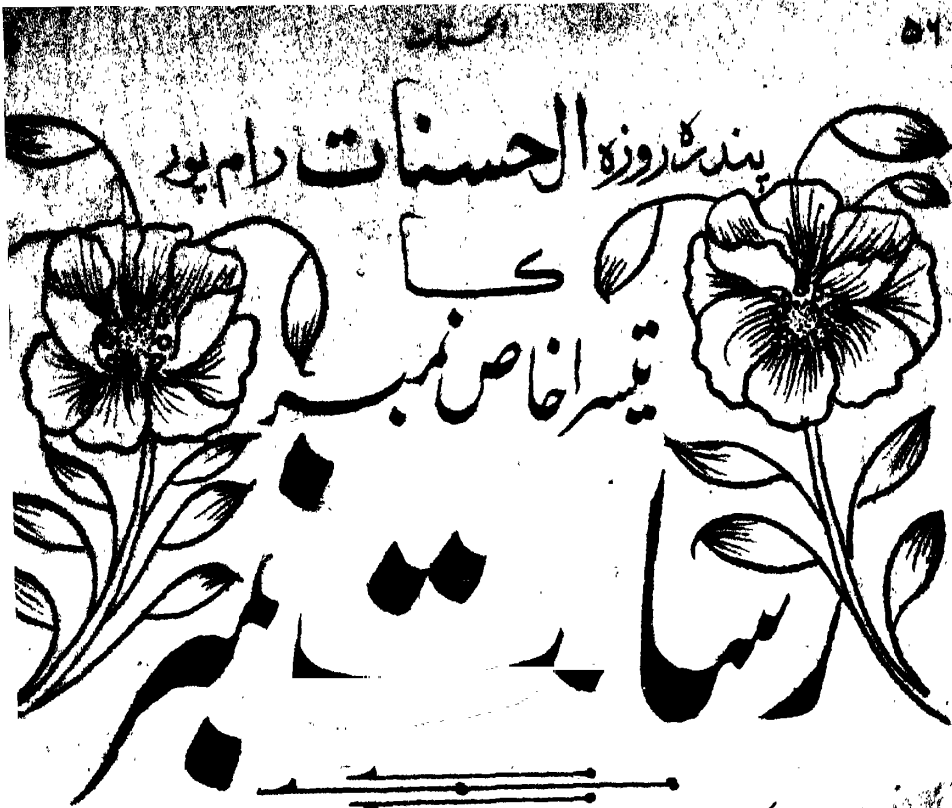 ۵۶
پندرہ روزہ الحسنات رام پور
کا
تیسرا خاص نمبر
نمبر